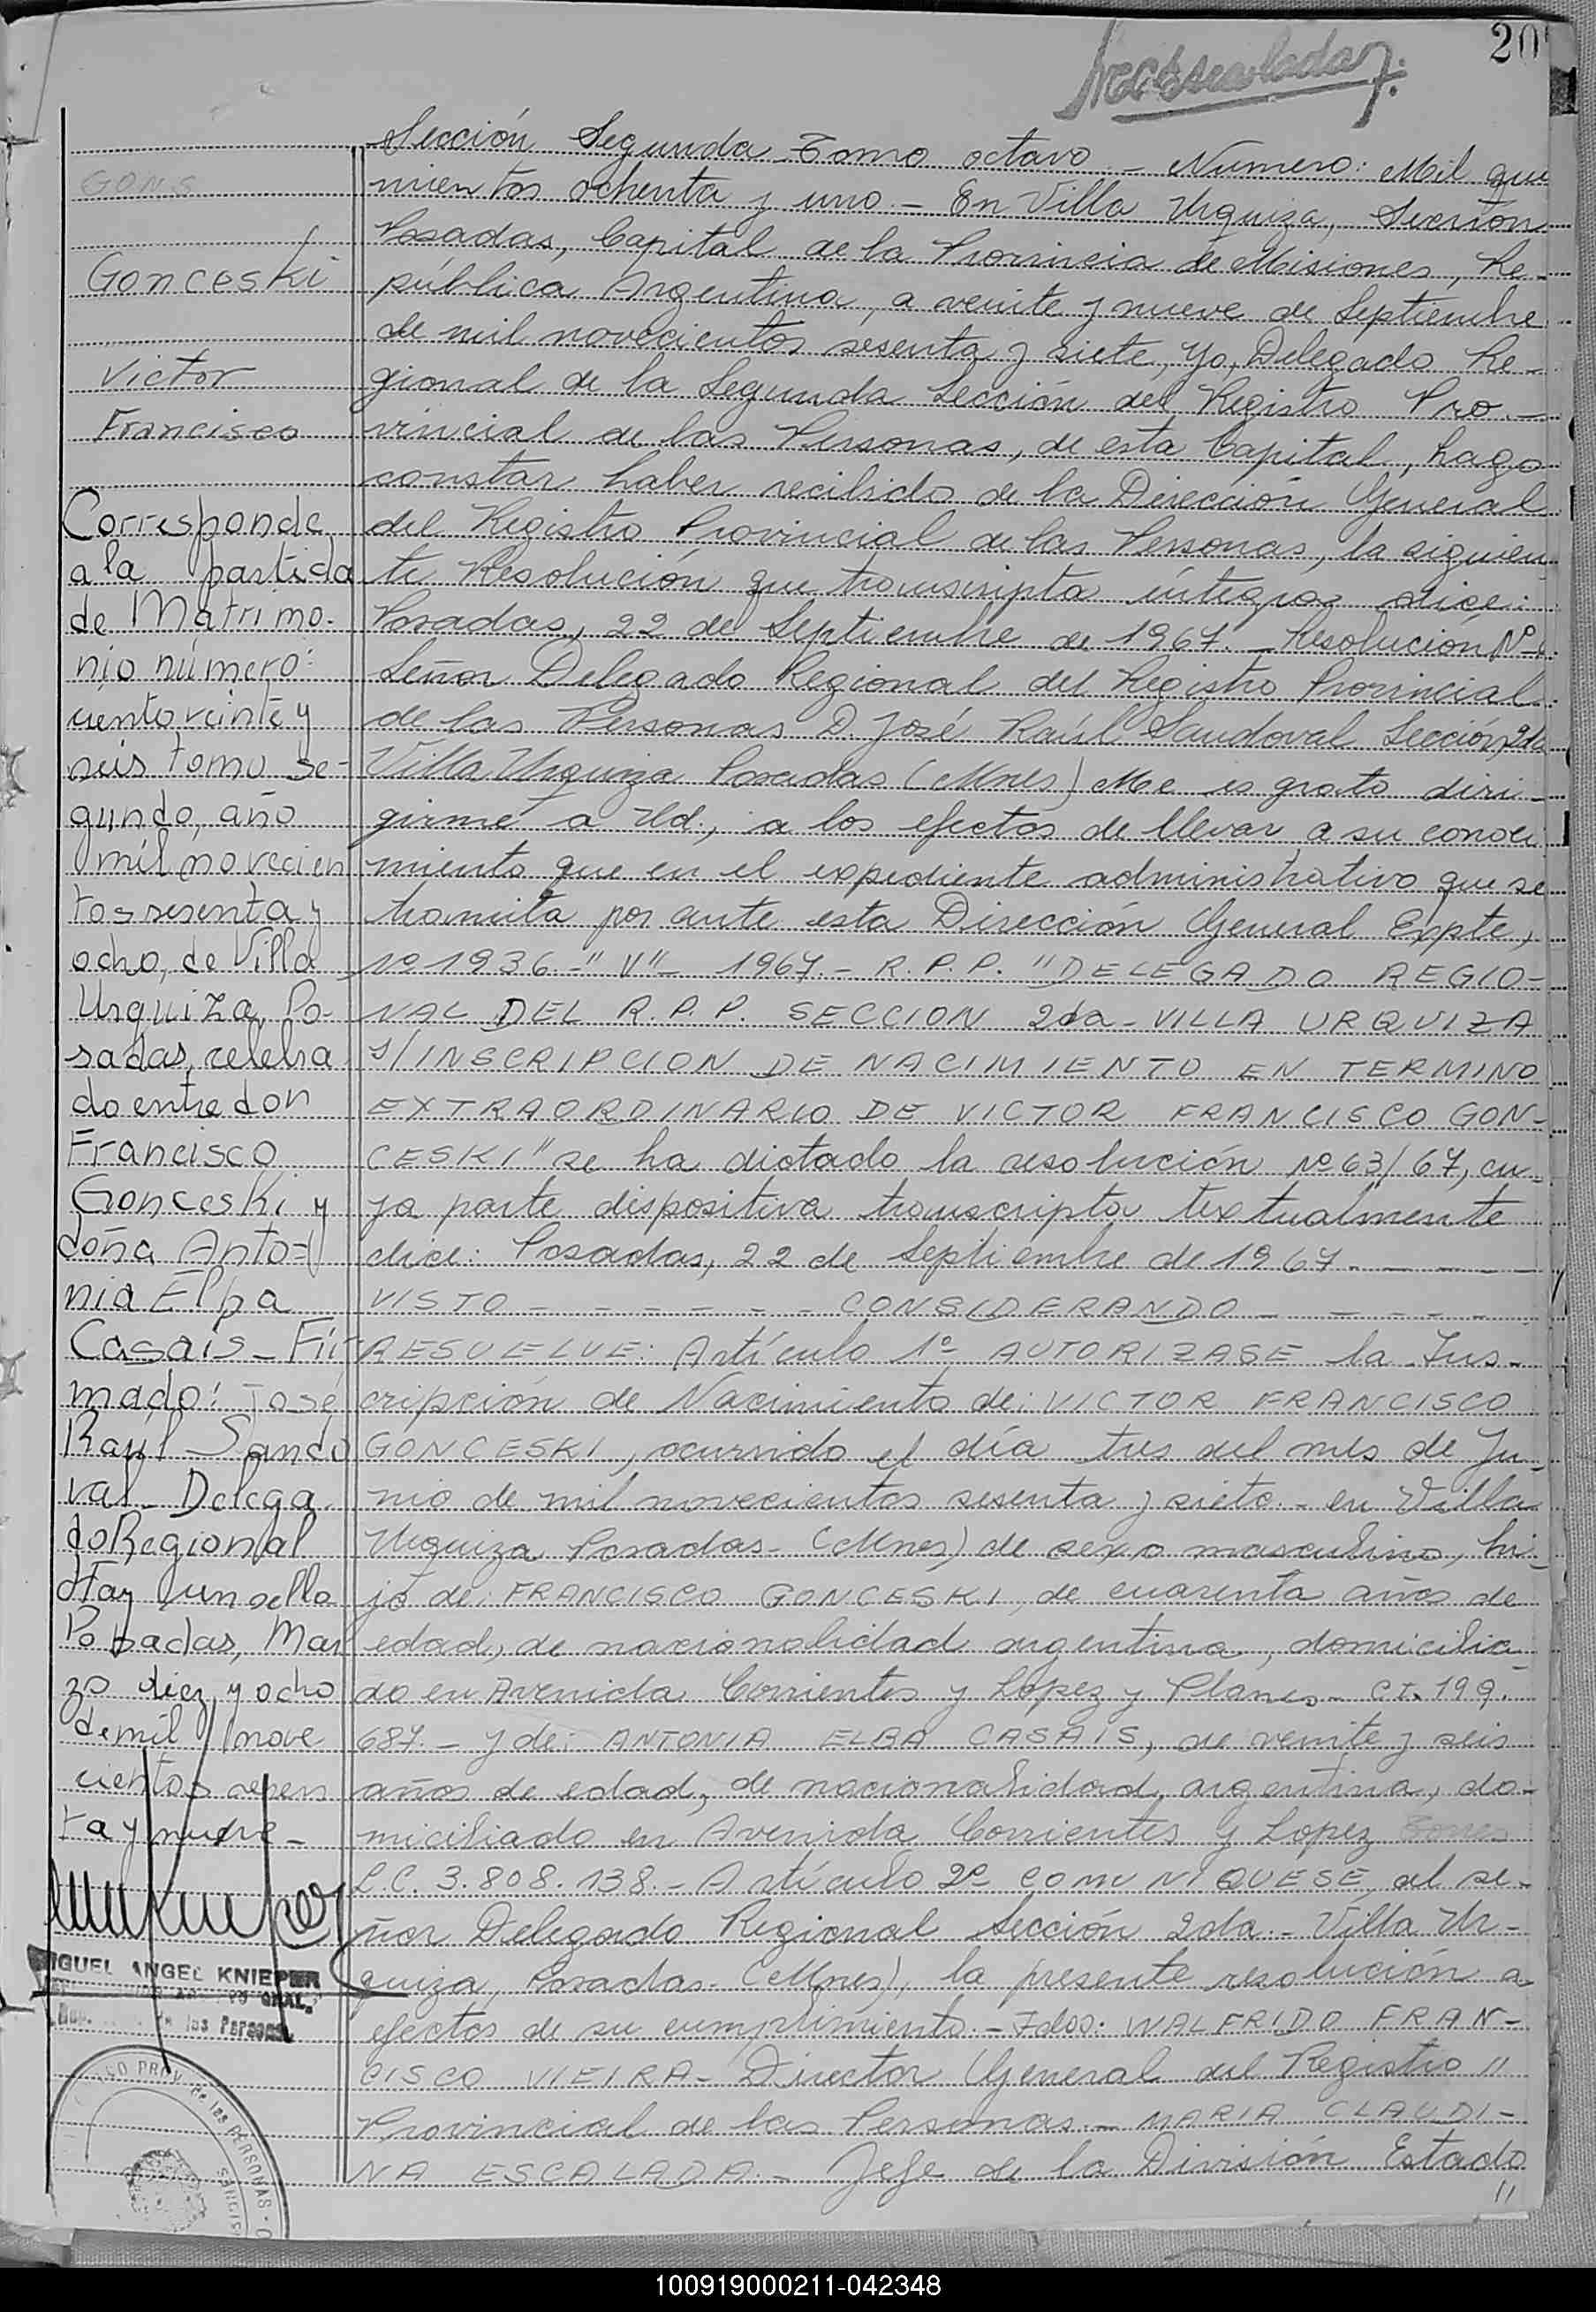 20
Sección Segunda Tomo octavo - Número: Mil qui
nientos ochenta y uno. - En Villa Urquiza, Sección
Posadas, Capital de la Provincia de Misiones, Re-
pública Argentina, a veinte y nueve de Septiembre
de mil novecientos sesenta y siete, Yo, Delegado Re-
gional de la Segunda Sección del Registro Pro-
vincial de las Personas, de esta Capital, hago
constar haber recibido de la Dirección General
del Registro Provincial de las Personas, la siguien
te Resolución que transcripta íntegra dice:
Posadas, 22 de Septiembre de 1967. - Resolución Nº
Señor Delegado Regional del Registro Provincial
de las Personas D. José Raúl Sandoval Sección 2da
Villa Urquiza Posadas (Mnes) Me es grato diri-
girme a Ud., a los efectos de llevar a su conoci
miento que en el expediente administrativo que se
tramita por ante esta Dirección General Expte,
Nº 1936 - "V" - 1967. - R.P.P. "DELEGADO REGIO-
NAL DEL R.P.P. SECCION 2da - VILLA URQUIZA
S/INSCRIPCION DE NACIMIENTO EN TERMINO
EXTRAORDINARIO DE VICTOR FRANCISCO GON-
CESKI" se ha dictado la resolución Nº 63/67, cu-
ya parte dispositiva transcripta textualmente
dice: Posadas, 22 de Septiembre de 1967. - - - -
VISTO - - - - - - CONSIDERANDO - - - - -
RESUELVE: Artículo 1º AUTORIZASE la Ins-
cripción de Nacimiento de: VICTOR FRANCISCO
GONCESKI, ocurrido el día tres del mes de Ju-
nio de mil novecientos sesenta y siete. - en Villa
Urquiza Posadas - (Mnes) de sexo masculino, hi-
jo de: FRANCISCO GONCESKI, de cuarenta años de
edad, de nacionalidad argentina, domicilia-
do en Avenida Corrientes y Lopez y Planes - C.I. 199.
687. - y de: ANTONIA ELBA CASAIS, de veinte y seis
años de edad, de nacionalidad argentina, do-
miciliado en Avenida Corrientes y Lopez
L.C. 3.808.138. - Artículo 2º COMUNIQUESE al se-
ñor Delegado Regional Sección 2da. - Villa Ur-
quiza, Posadas - (Mnes), la presente resolución a
efectos de su cumplimiento. - Fdos: WALFRIDO FRAN-
CISCO VIEIRA - Director General del Registro "
Provincial de las Personas. - MARIA CLAUDI-
NA ESCALADA. - Jefe de la División Estado
"
GONS
Gonceski
Victor
Francisco
Corresponde
a la partida
de Matrimo-
nio número:
ciento veinte y
seis tomo se-
gundo, año
mil novecien
tos sesenta y
ocho, de Villa
Urquiza, Po-
sadas, celebra
do entre don
Francisco
Gonceski y
doña Anto=
nia Elba
Casais - Fir
mado: José
Raúl Sando
val - Delega
do Regional
Hay un sello
Posadas, Mar
zo diez y ocho
de mil nove
cientos seten
ta y nueve -
IGUEL ANGEL KNIEPER
GRAL.
de las Personas
PROV. de las PERSONAS
100919000211-042348